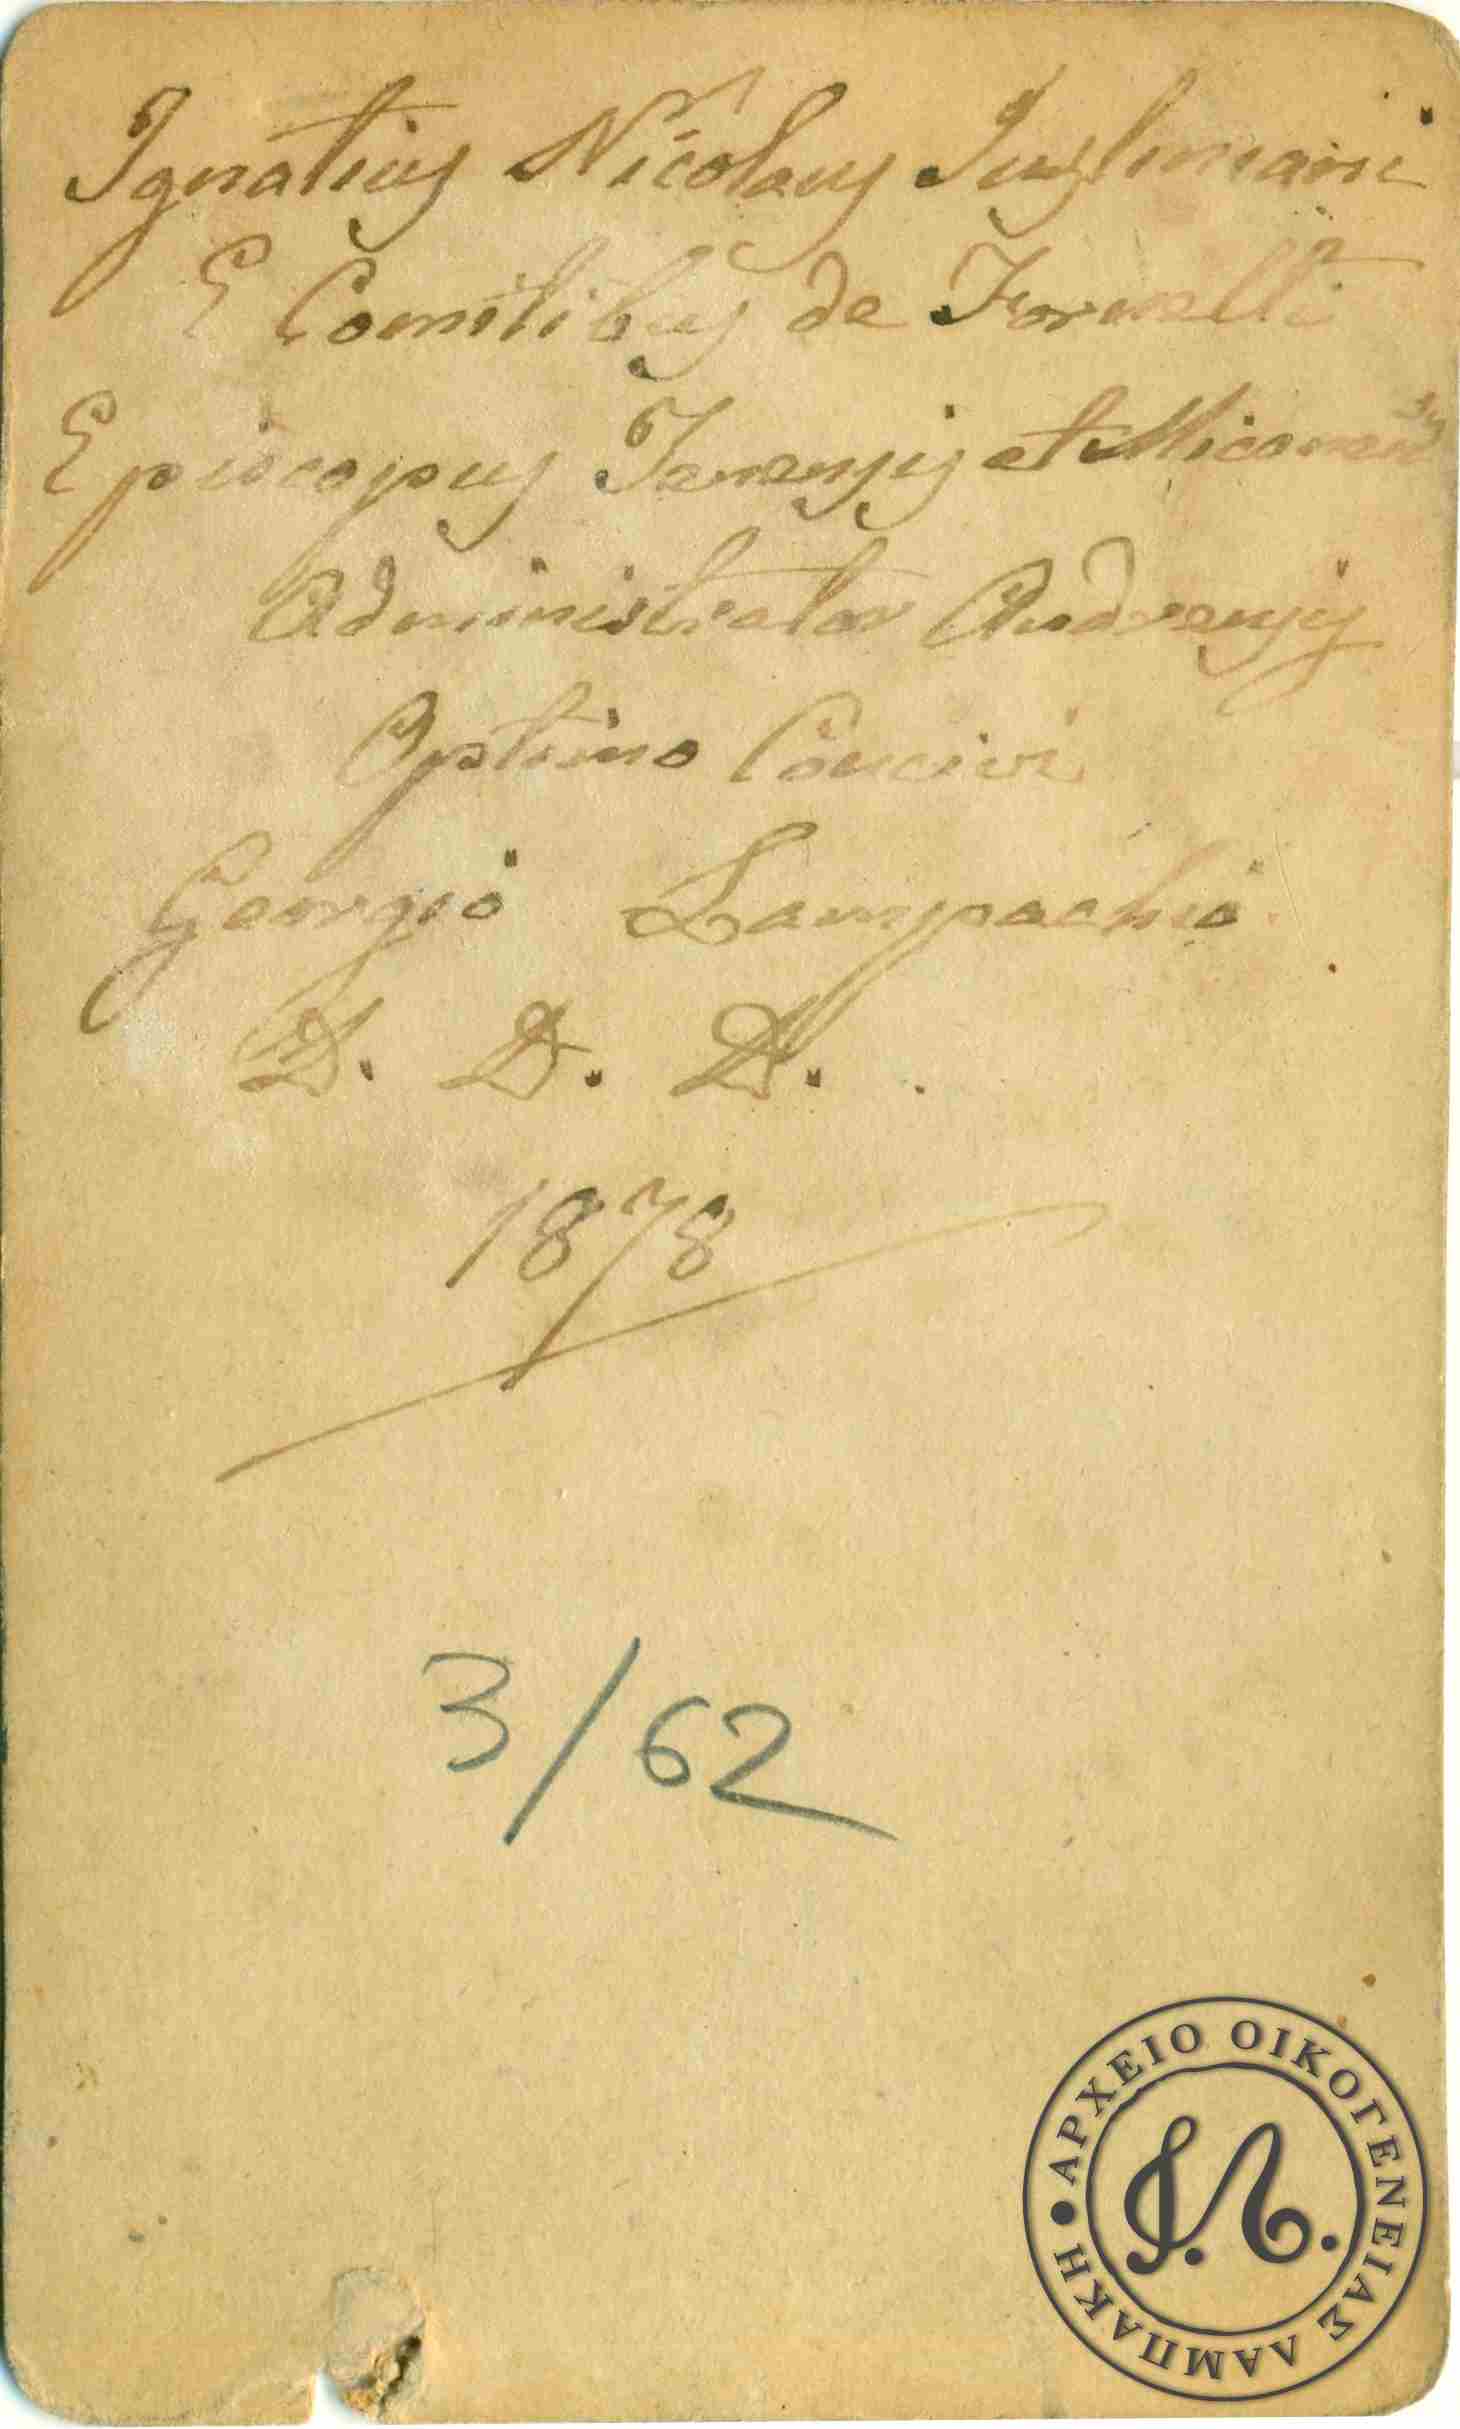 Ignatius Nicolaus Justiniani
E Comitibus de Fornetti
Episcopus Tenensis et Miconensis
Administrator Andrensis
Optimo Concivi
Georgio Lampachio
D. D. D.
1878
3/62
ΑΡΧΕΙΟ ΟΙΚΟΓΕΝΕΙΑΣ ΛΑΜΠΑΚΗ